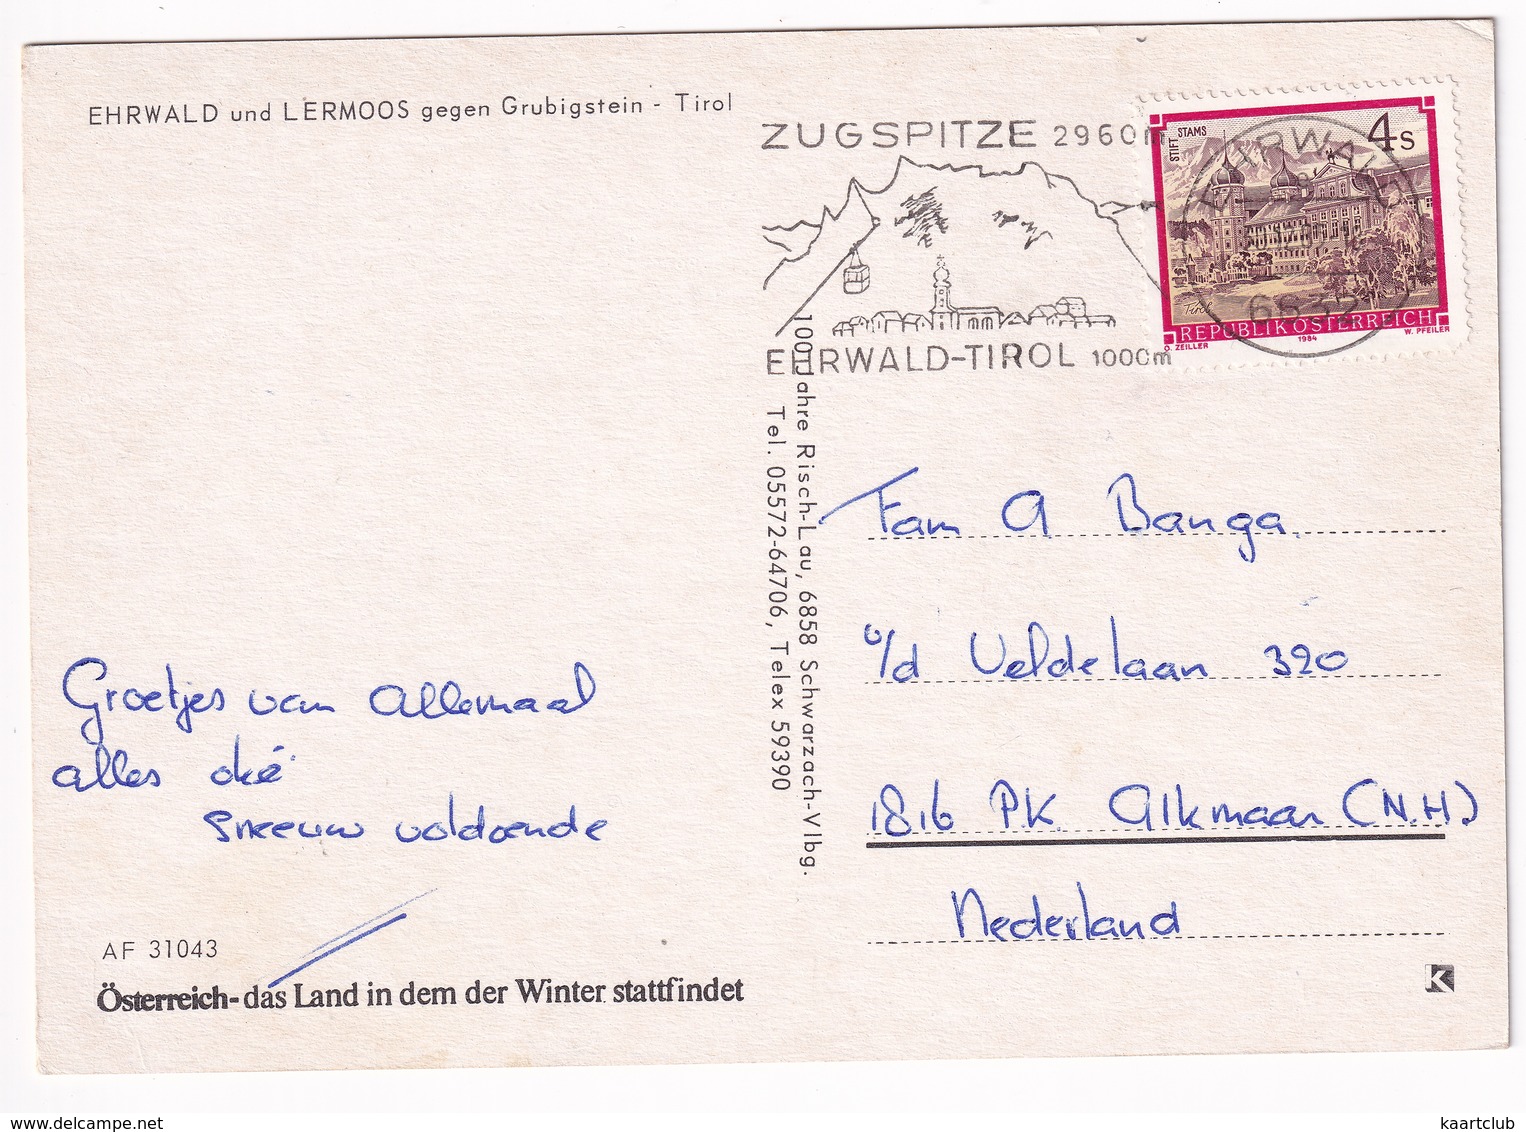 EHRWALD und LERMOOS gegen Grubigstein - Tirol
ZUGSPITZE 2960m
EHRWALD-TIROL 1000m
STIFT STAMS
4s
Tirol
REPUBLIK ÖSTERREICH
O. ZEILLER 1984 W. PFEILER
EHRWALD
6632
100 Jahre Risch-Lau, 6858 Schwarzach-Vlbg.
Tel. 05572-64706, Telex 59390
Fam A Banga
v/d Veldelaan 320
1816 PK Alkmaar (N.H)
Nederland
Groetjes van Allemaal
alles oké
sneeuw voldoende
AF 31043
Österreich-das Land in dem der Winter stattfindet
K
www.delcampe.net
kaartclub